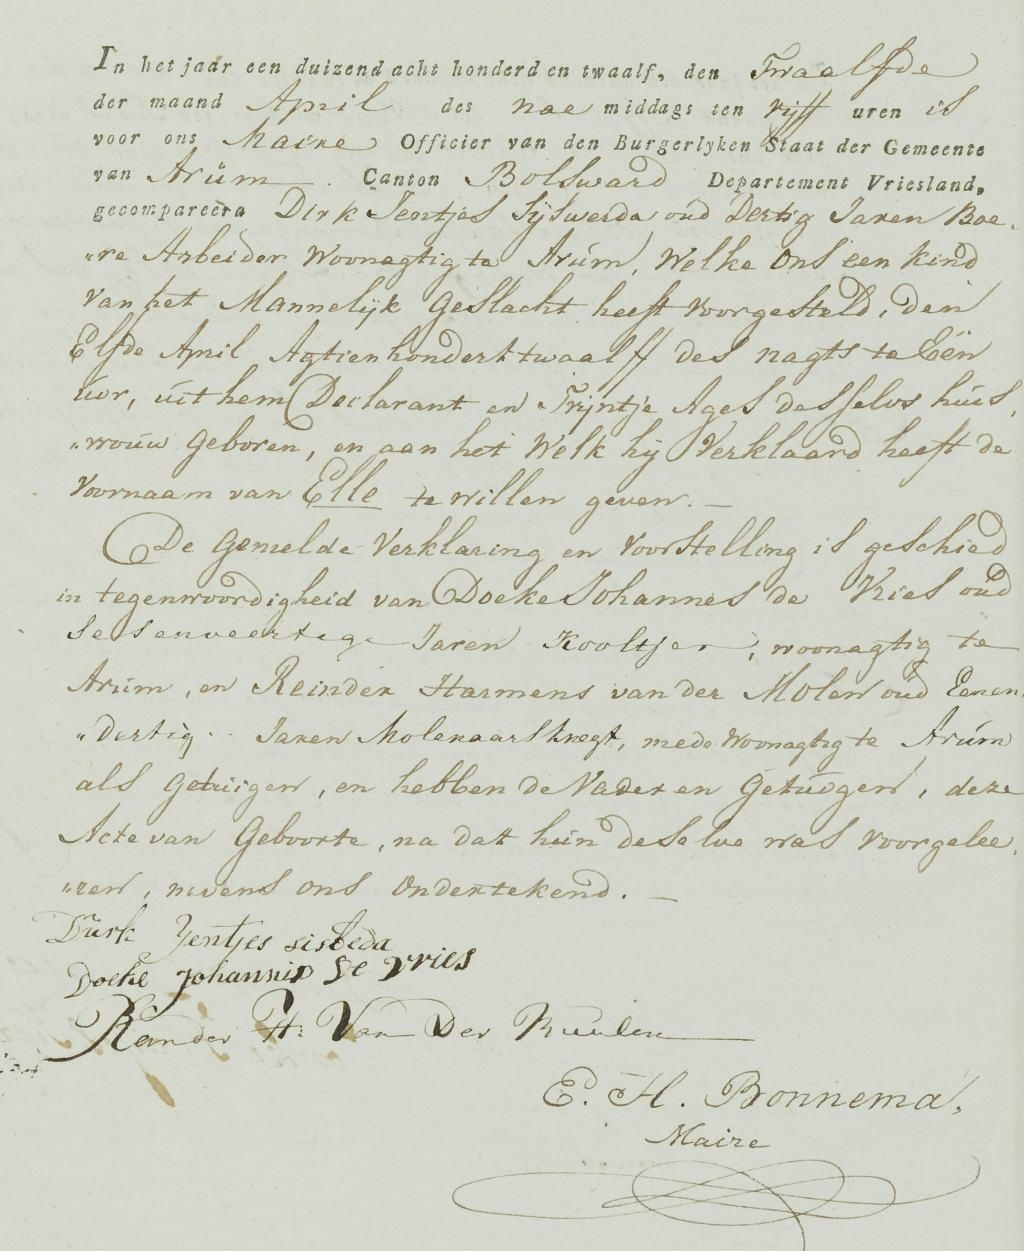 In het jaar een duizend acht honderd en twaalf, den Twaalfde
der maand April des nae middags ten vijff uren is
voor ons Maire Officier van den Burgerlyken Staat der Gemeente
van Arúm Canton Bolsward Departement Vriesland,
gecompareera Dirk Jentjes Sijswerda oud Dertig Jaren Boe-
"re Arbeider Woonagtig te Arúm, Welke Ons een kind
van het Mannelijk Geslacht heeft voorgesteld, den
Elfde April Agtienhondert twaalff des nagts te Eën
úúr, úit hem Declarant en Trijntje Ages desselvs húis,
"vrouw Geboren, en aan het Welk hij Verklaard heeft de
Voornaam van Elle te willen geven. —
De Gemelde Verklaring en voorstelling is geschied
in tegenwoordigheid van Doeke Johannes de Vries oúd
Sesenveertige Jaren Kooltjer, woonagtig te
Arúm, en Reinder Harmens van der Molen oúd Eenen
"dertig Jaren Molenaars knegt, mede Woonagtig te Arúm
als Getuigen, en hebben de Vader en Getúigen, deze
Acte van Geboorte, na dat hún deselve was voorgelee,
"zen, nevens ons Ondertekend. —
Dúrk Jentjes sisweda
Doeke Johannis De Vries
Reinder H: Van Der Muulen
E. H. Bonnema,
Maire